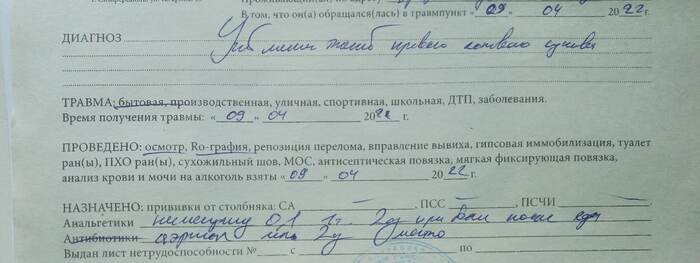 Проживающий(ая) по адресу
В том, что он(а) обращался(лась) в травмпункт «09» 04 2022 г.
ДИАГНОЗ Ушиб мягких тканей правого коленного сустава
ТРАВМА: бытовая, производственная, уличная, спортивная, школьная, ДТП, заболевания.
Время получения травмы: «09» 04 2022 г.
ПРОВЕДЕНО: осмотр, Ro-графия, репозиция перелома, вправление вывиха, гипсовая иммобилизация, туалет
ран(ы), ПХО ран(ы), сухожильный шов, МОС, антисептическая повязка, мягкая фиксирующая повязка,
анализ крови и мочи на алкоголь взяты «09» 04 2022 г.
НАЗНАЧЕНО: прививки от столбняка: СА , ПСС , ПСЧИ ,
Анальгетики нимесулид 0,1 1т. 2р при боли после еды
Антибиотики 2р местно
Выдан лист нетрудоспособности № с по